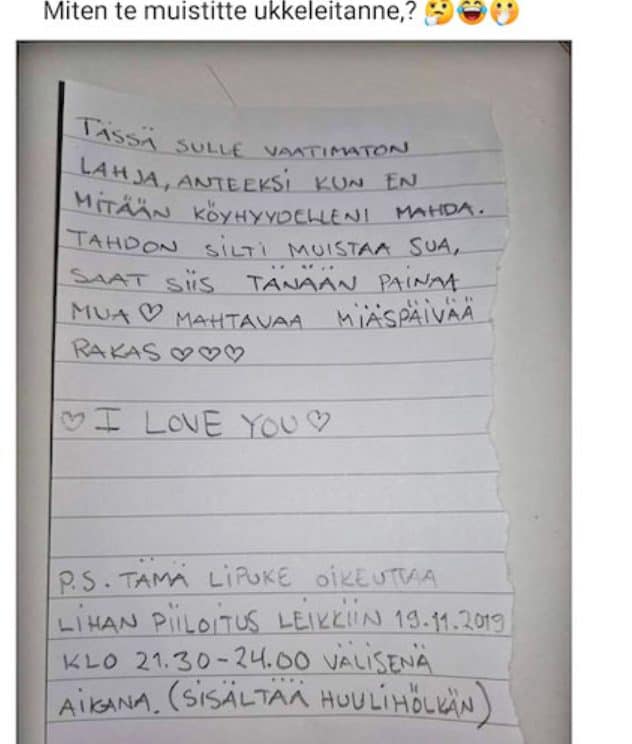 Miten te muistitte ukkeleitanne,? 🤔😂🤭
TÄSSÄ SULLE VAATIMATON
LAHJA, ANTEEKSI KUN EN
MITÄÄN KÖYHYYDELLENI MAHDA.
TAHDON SILTI MUISTAA SUA,
SAAT SIIS TÄNÄÄN PAINAA
MUA ♡ MAHTAVAA MIÄSPÄIVÄÄ
RAKAS ♡♡♡
♡ I LOVE YOU ♡
P.S. TÄMÄ LIPUKE OIKEUTTAA
LIHAN PIILOITUS LEIKKIIN 19.11.2019
KLO 21.30-24.00 VÄLISENÄ
AIKANA. (SISÄLTÄÄ HUULIHÖLKÄN)